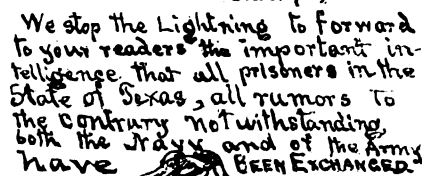 We stop the Lightning to forward
to your readers this important in-
telligence that all prisoners in the
State of Texas, all rumors to
the contrary notwithstanding,
both the Navy and of the Army
have BEEN EXCHANGED.